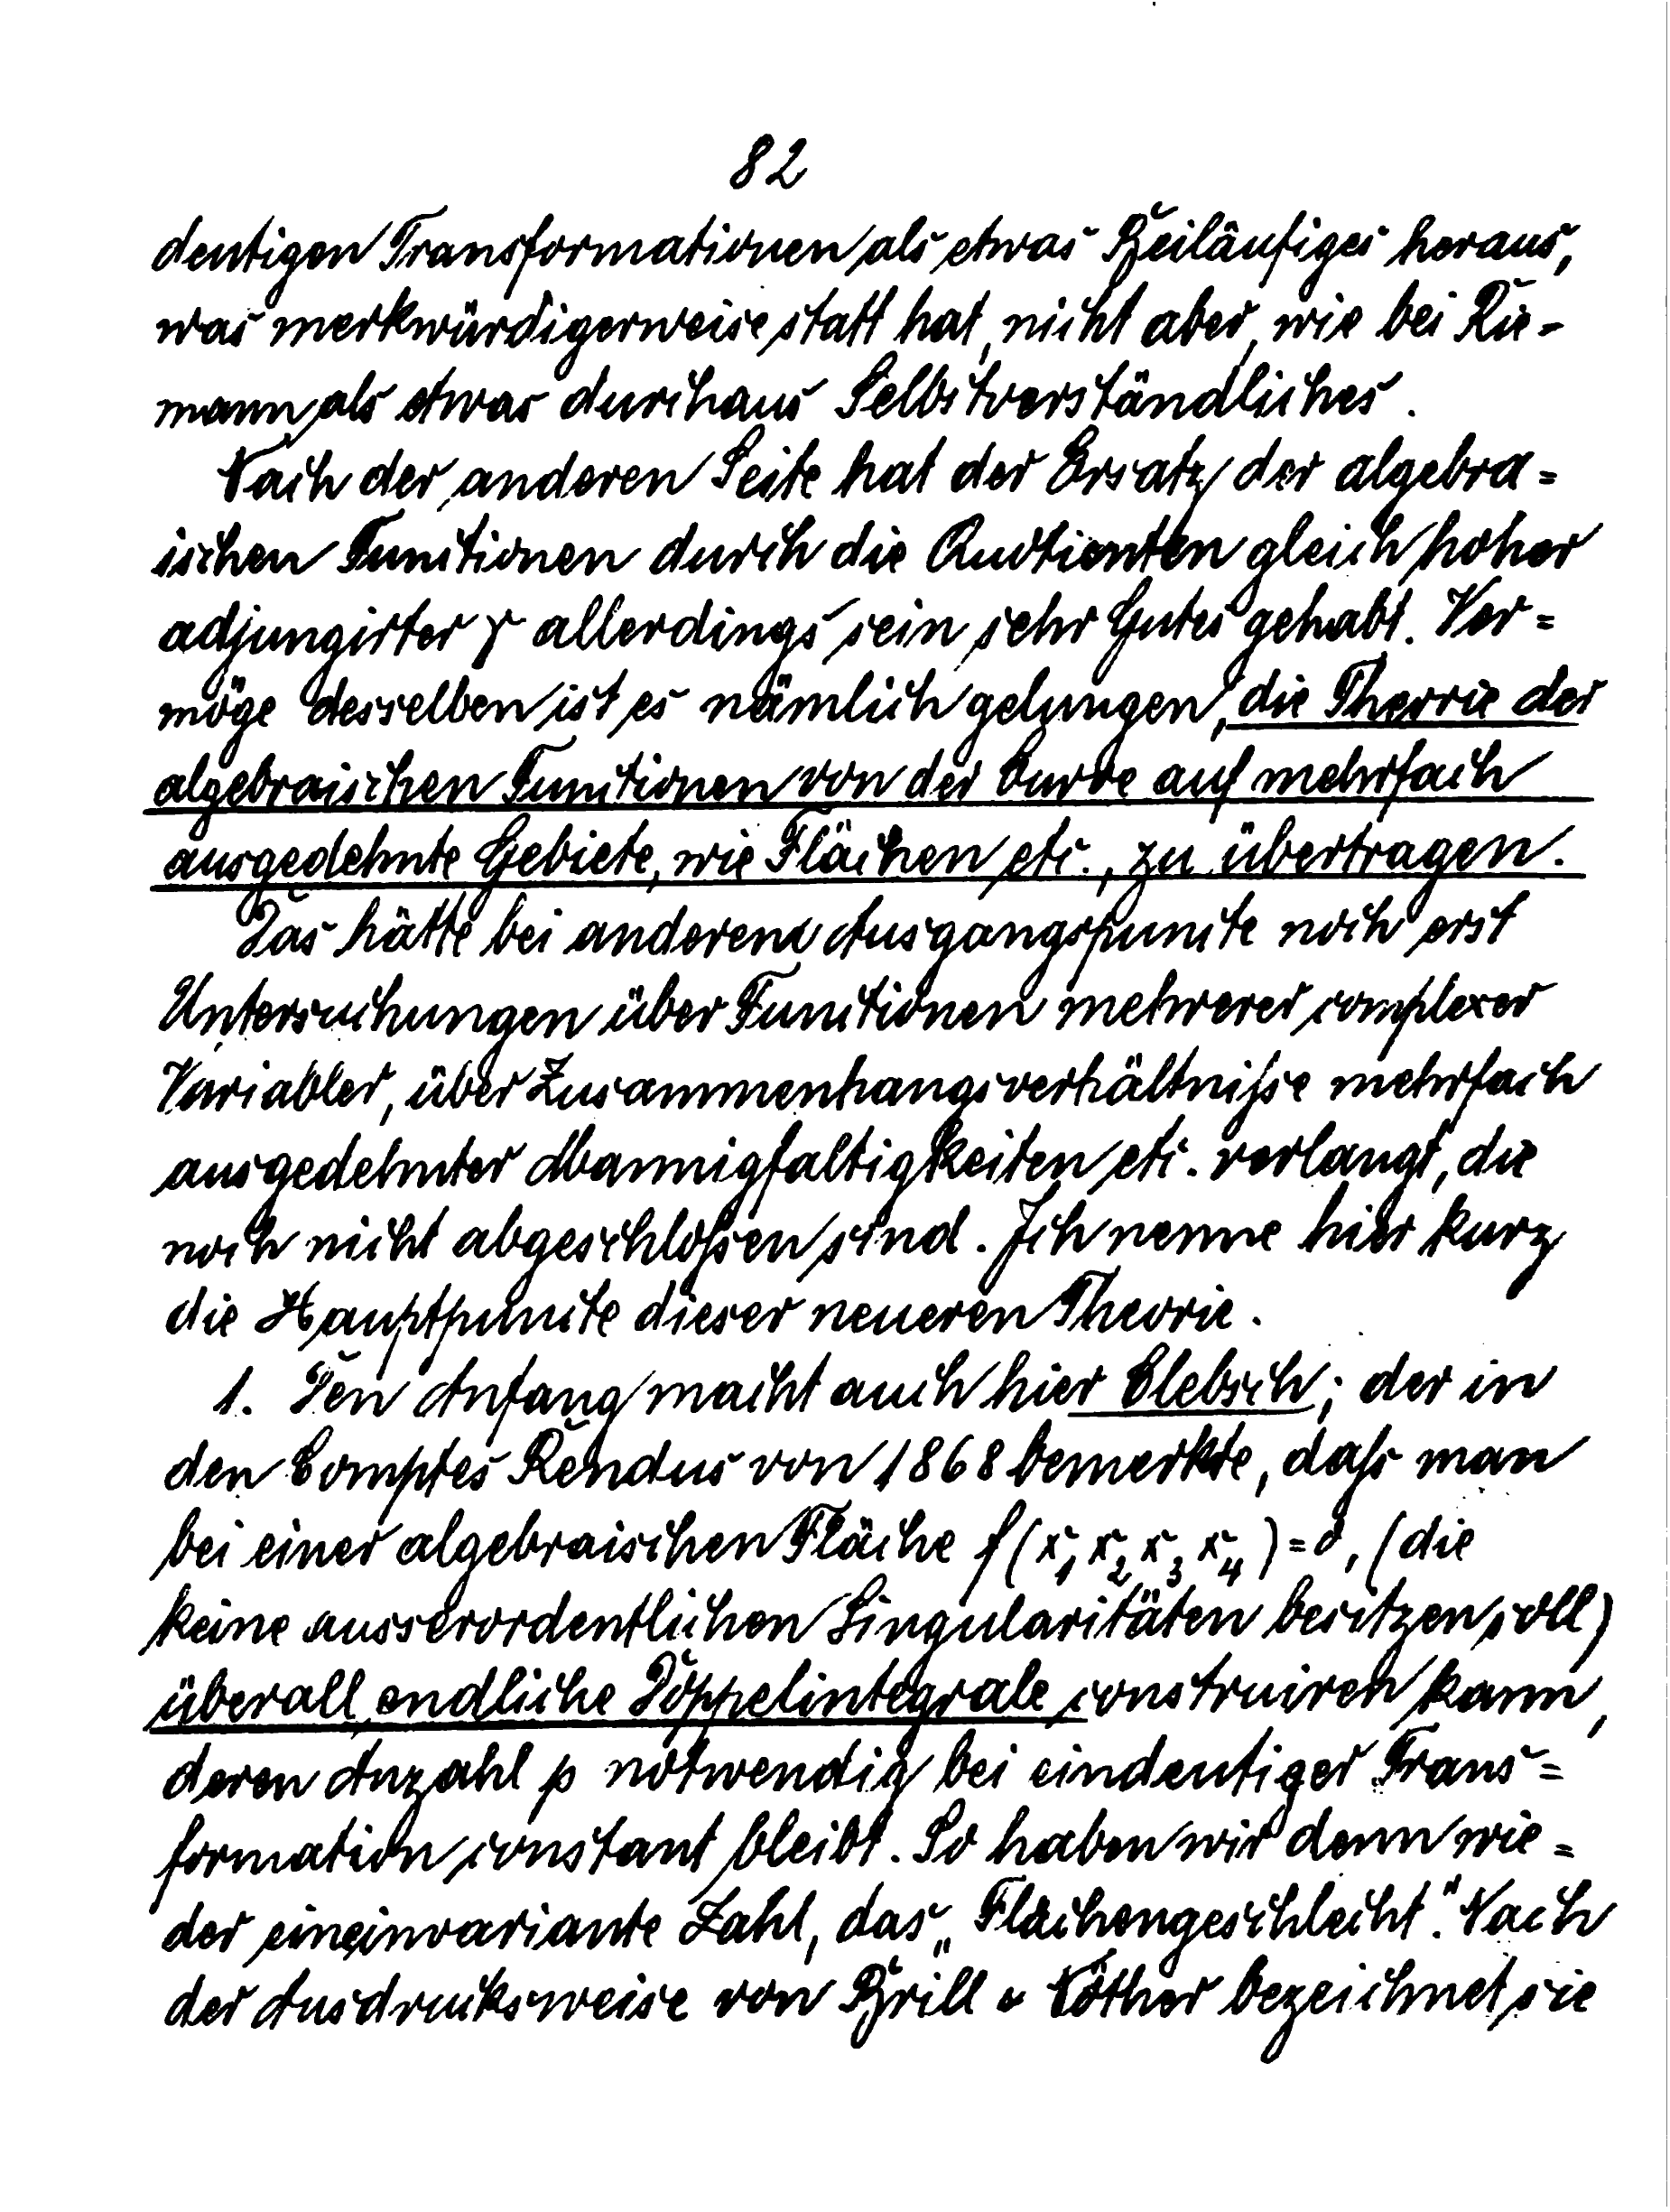 82
deutigen Transformationen als etwas Beiläufiges heraus,
was merkwürdigerweise statt hat, nicht aber, wie bei Rie-
mann, als etwas durchaus Selbstverständliches.
Nach der anderen Seite hat der Ersatz der algebra=
ischen Functionen durch die Quotienten gleich hoher
adjungirter φ allerdings sein sehr Gutes gehabt. Ver=
möge desselben ist es nämlich gelungen, die Theorie der
algebraischen Functionen von der Curve auf mehrfach
ausgedehnte Gebiete, wie Flächen etc., zu übertragen.
Das hätte bei anderem Ausgangspuncte noch erst
Untersuchungen über Functionen mehrerer complexer
Variabler, über Zusammenhangsverhältniße mehrfach
ausgedehnter Mannigfaltigkeiten etc. verlangt, die
noch nicht abgeschloßen sind. Ich nenne hier kurz
die Hauptpuncte dieser neueren Theorie.
1. Den Anfang macht auch hier Clebsch; der in
den Comptes Rendus von 1868 bemerkte, daß man
bei einer algebraischen Fläche f(x₁ x₂ x₃ x₄)=0, (die
keine ausserordentlichen Singularitäten besitzen soll)
überall endliche Doppelintegrale construiren kann,
deren Anzahl p notwendig bei eindeutiger Trans=
formation constant bleibt. So haben wir denn wie=
der eine invariante Zahl, das „Flächengeschlecht". Nach
der Ausdrucksweise von Brill u Nöther bezeichnet sie